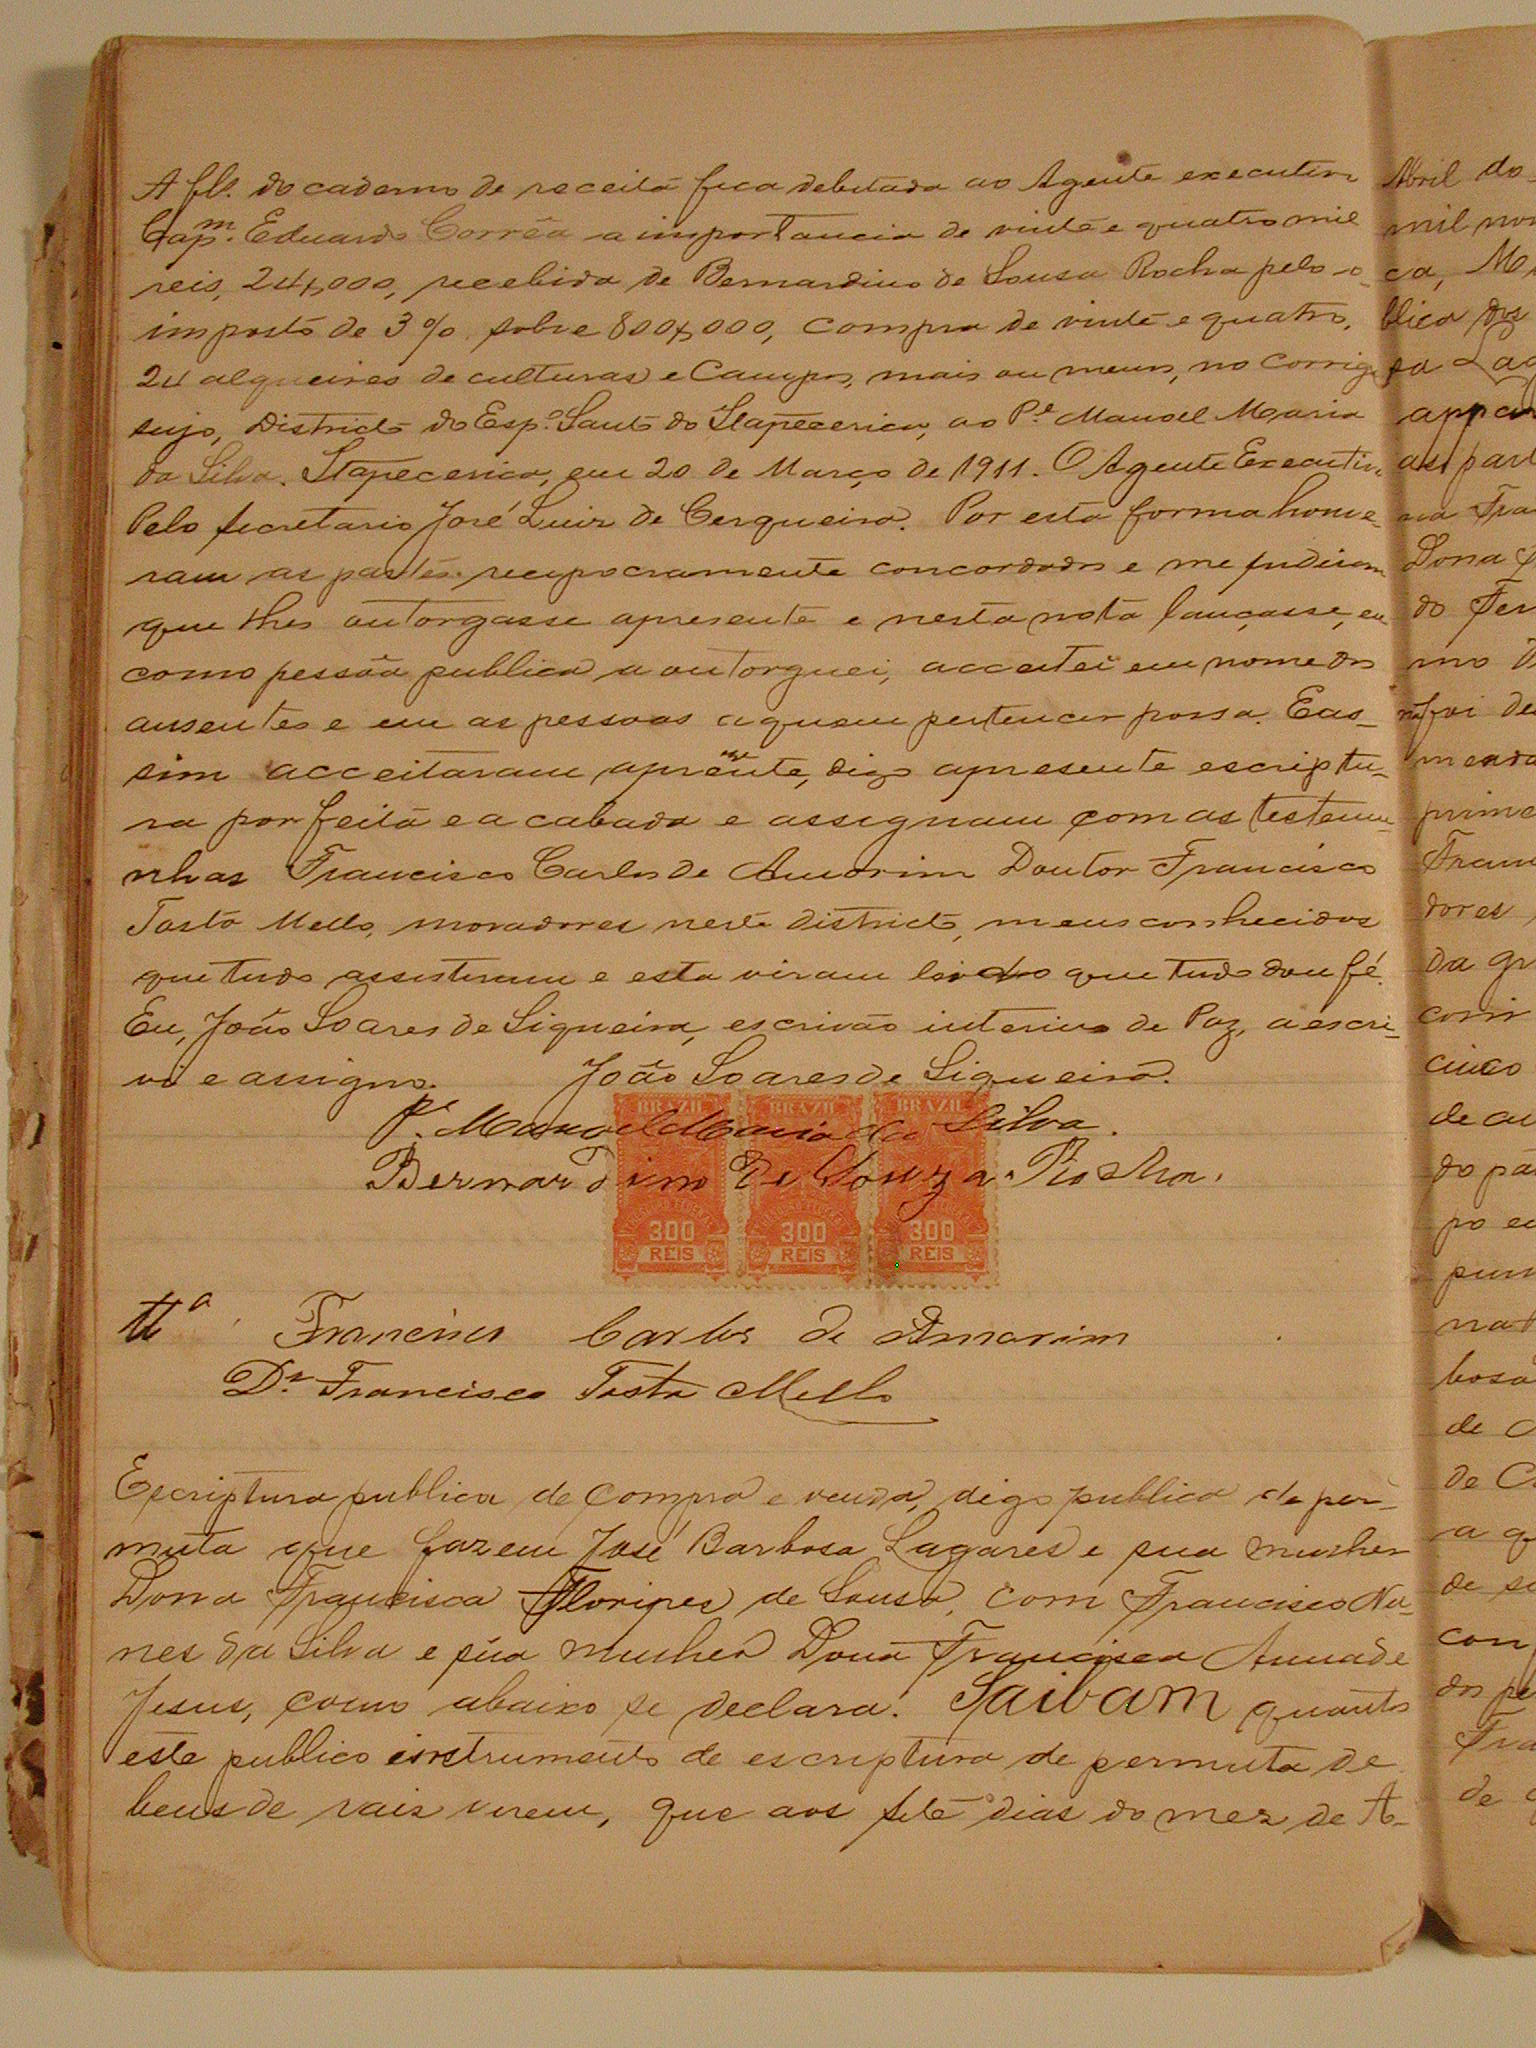 A fls. do caderno de receita fica debitada ao Agente executivo
Capm. Eduardo Corrêa a importancia de vinte e quatro mil
reis, 24$000, recebida de Bernardino de Sousa Rocha pelo o
imposto de 3% sobre 800$000, compra de vinte e quatro,
24 alqueires de culturas e Campos, mais ou menos, no Corrigo
sujo, Districto do Espo. Santo do Itapecerica, ao Pe. Manoel Maria
da Silva. Itapecerica, em 20 de Março de 1911. O Agente Executivo
Pelo secretario José Luiz de Cerqueira. Por esta forma houve-
ram as partes reciprocramente concordados e me pediram
que lhes outorgasse apresente e nesta nota lançasse, eu
como pessôa publica a outorguei, acceitei em nome dos
ausentes e em as pessoas aquem pertencer possa. Eas-
sim acceitaram aprente, digo apresente escriptu-
ra por feita e a cabada e assignam com as testemu-
nhas Francisco Carlos de Amorim Doutor Francisco
Tosta Mello, moradores neste districto, meus conhecidos
que tudo assisteram e esta viram ler do que tudo dou fé.
Eu, João Soares de Siqueira, escrivão interino de Paz, a escri-
vi e assigno. João Soares de Siqueira.
Pe. Manoel Maria da Silva.
Bernardino de Souza Rocha.
BRAZIL BRAZIL BRAZIL
300 300 300
REIS REIS REIS
tta Francisco Carlos de Amorim
Dr. Francisco Tosta Mello
Escriptura publica de Compra e venda, digo publica de per-
muta que fazem José Barbosa Lagares e sua mulher
Dona Francisca Floripes de Sousa, com Francisco Nu-
nes da Silva e sua mulher Dona Francisca Anna de
Jesus, como abaixo se declara. Saibam quantos
este publico instrumento de escriptura de permuta de
bens de raiz virem, que aos sete dias do mez de A-
Abril do
mil nov
ca, M
blica dos
sa Lag
appar
as part
ava Fra
Dona F
do Fer
mo d
foi de
meada
prime
Fran
dores
da gr
conr
cinco
de au
do pa
po eu
pum
nat
bosa
de C
de C
a q
de se
con
dos pe
Fra
de